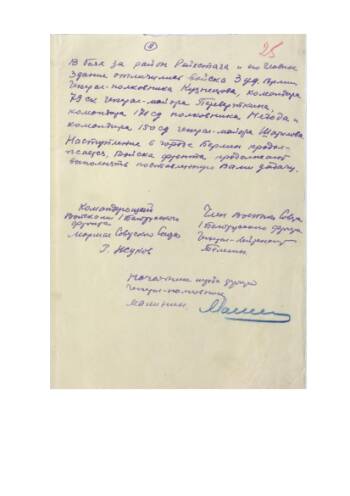 8
25
В боях за район Рейхстага и его главное
здание отличились войска 3 уд. армии
генерал-полковника Кузнецова, командира
79 ск генерал-майора Переверткина,
командира 171 сд полковника Негода и
командира 150 сд генерал-майора Шатилова.
Наступление в городе Берлин продол-
жается, войска фронта продолжают
выполнять поставленную Вами задачу.
Командующий
войсками 1 Белорусского
фронта
Маршал Советского Союза
Г. Жуков
Член Военного Совета
1 Белорусского фронта
генерал-лейтенант
Телегин
Начальник штаба фронта
генерал-полковник
Малинин.